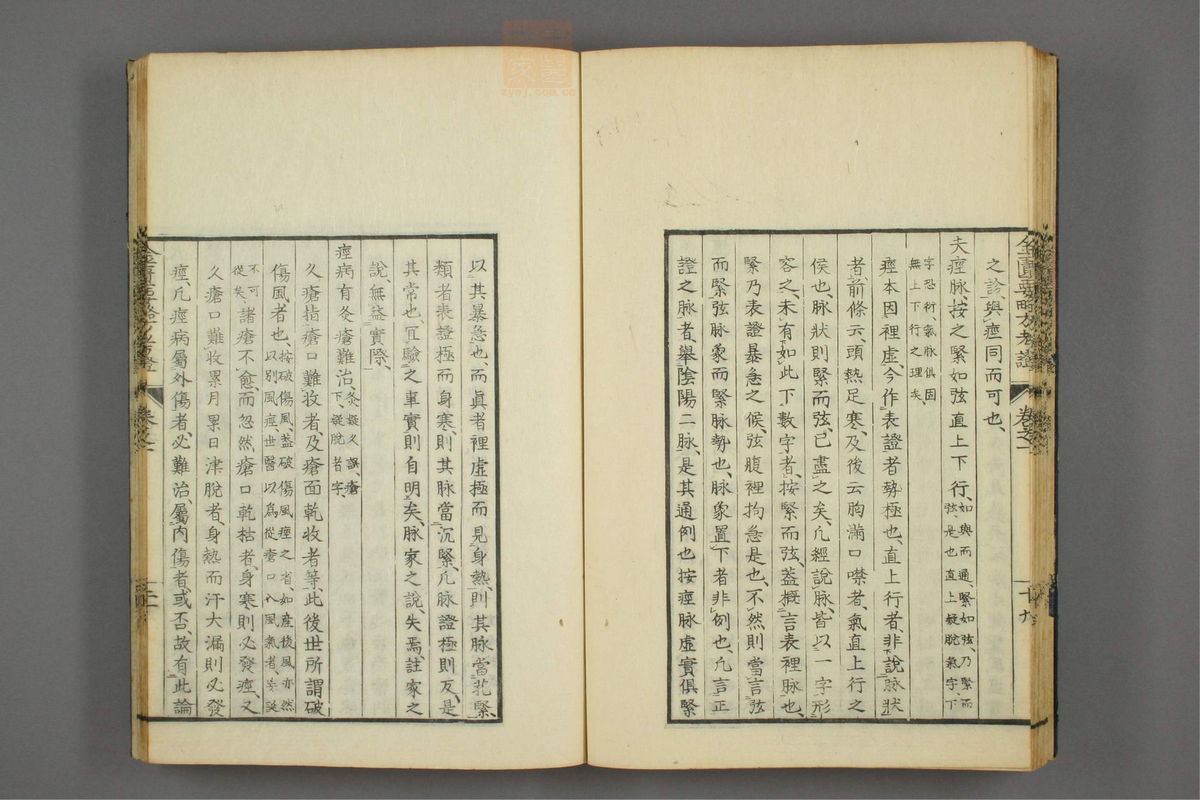 之診、與痙同而可也、
夫痙脉、按之緊如弦直上下行、如與而通、緊如弦、乃緊而弦、是也直上疑脫氣字下
字恐衍、氣脉俱因無上下行之理矣、
痙本因裡虛、今作表證者勢極也、直上行者、非說脉狀
者、前條云、頭熱足寒、及後云胸滿口噤者、氣直上行之
侯也、脉狀則緊而弦、已盡之矣、凡經說脉、皆以一字形
容之、未有如此下數字者、按緊而弦、蓋概言表裡脉也、
緊乃表證暴急之候、弦腹裡拘急是也、不然則當言弦
而緊、弦脉象而緊脉勢也、脉象置下者非例也、凡言正
證之脉者、舉陰陽二脉、是其通例也按痙脉虛實俱緊
金匱要略方考證
卷之一
十九
以其暴急也而眞者裡虛極而見身熱、則其脉當芤緊、
類者表證極而身寒、則其脉當沉緊、凡脉證極則反、是
其常也、宜驗之事實則自明矣、脉家之說、失焉、註家之
說、無益實際、
痙病有灸瘡難治、灸疑久誤、瘡下、疑脫者字、
久瘡、指瘡口難收者及瘡面乾收者等、此後世所謂破
傷風者也、按破傷風、蓋破傷風痙之省如産後風亦然以別風痙、世醫以爲從瘡口入風氣者、妄誕
不可從矣、諸瘡不愈、而忽然瘡口乾枯者、身寒則必發痙、又
久瘡口難收累月累日津脫者、身熱而汗大漏則必發
痙、凡痙病屬外傷者、必難治、屬内傷者、或否、故有此論